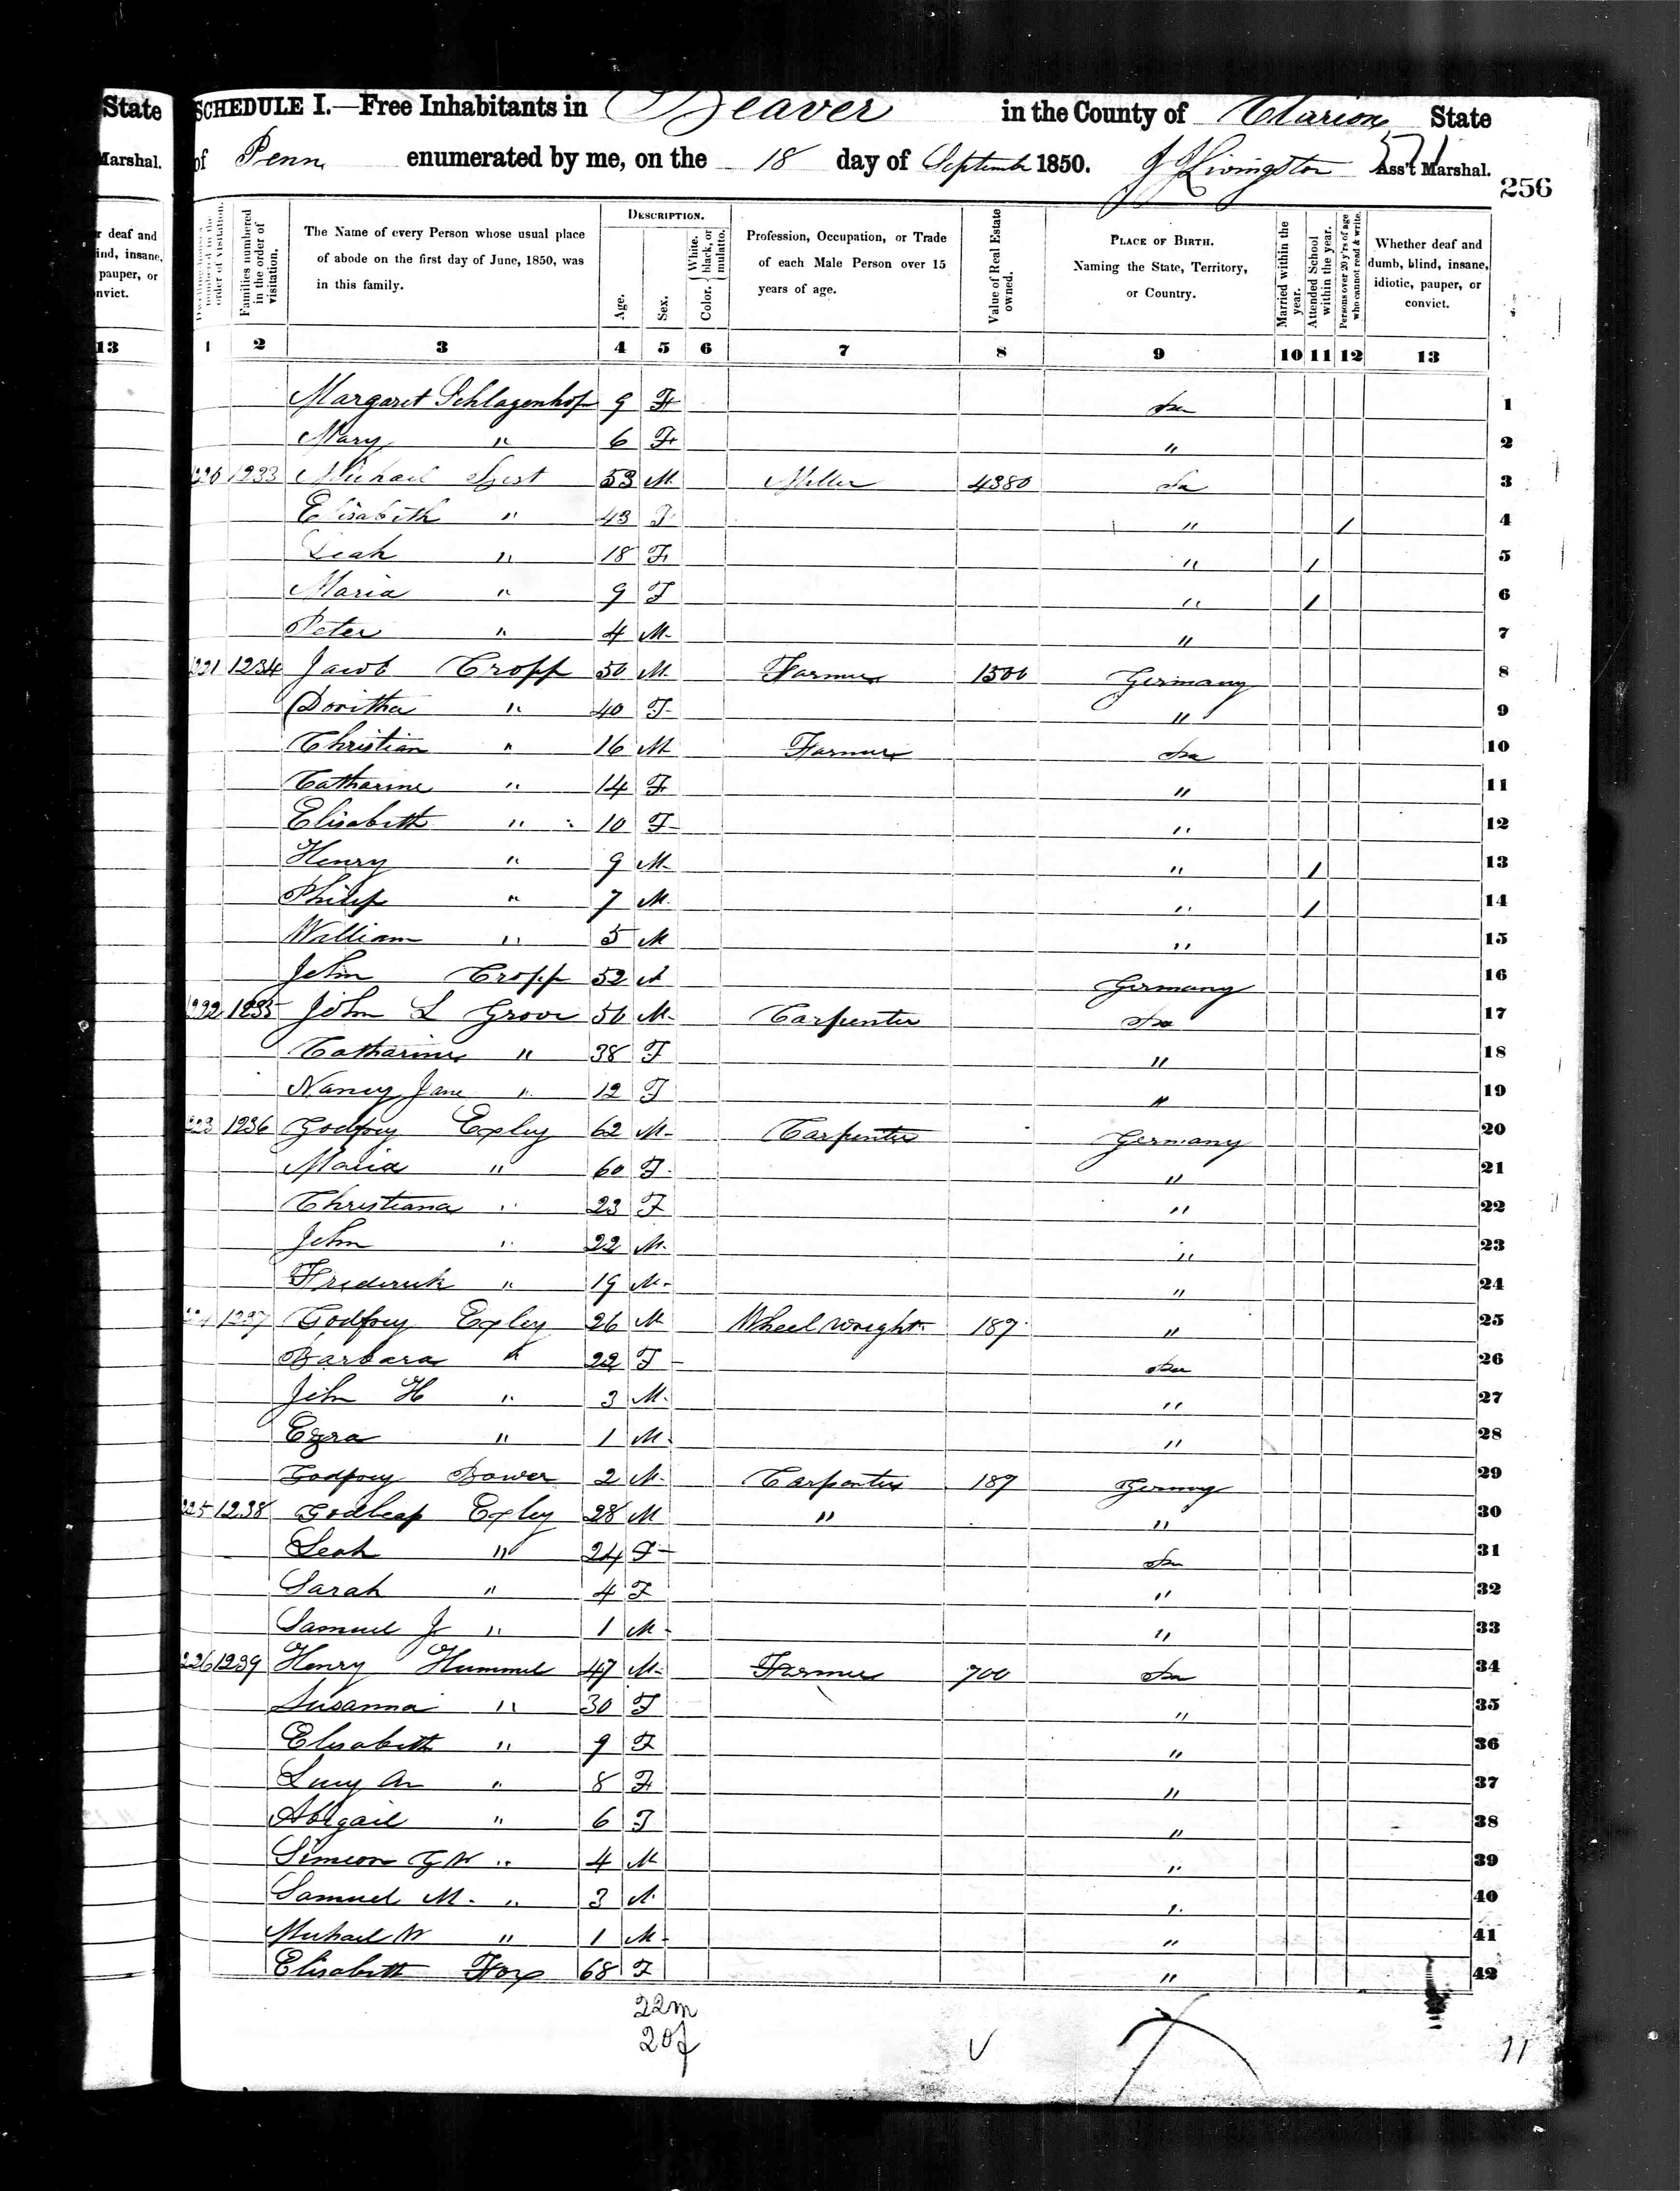 State
Marshal.
r deaf and
ind, insane,
pauper, or
nvict.
13
SCHEDULE I.—Free Inhabitants in Beaver in the County of Clarion State
of Penn enumerated by me, on the 18 day of September 1850. J J Livingston Ass't Marshal.
571
256
Families numbered in the order of visitation.
The Name of every Person whose usual place of abode on the first day of June, 1850, was in this family.
DESCRIPTION.
Age.
Sex.
Color. White, black, or mulatto.
Profession, Occupation, or Trade of each Male Person over 15 years of age.
Value of Real Estate owned.
PLACE OF BIRTH. Naming the State, Territory, or Country.
Married within the year.
Attended School within the year.
Persons over 20 y'rs of age who cannot read & write.
Whether deaf and dumb, blind, insane, idiotic, pauper, or convict.
1 2 3 4 5 6 7 8 9 10 11 12 13
Margaret Schlagenhof 9 F 1
Mary " 6 F " 2
1233 Michael 53 M Miller 4380 Pa 3
Elisabeth " 43 F " / 4
Leah " 18 F " / 5
Maria " 9 F " / 6
Peter " 4 M " 7
1234 Jacob Cropp 50 M Farmer 1500 Germany 8
Doritha " 40 F " 9
Christian " 16 M Farmer Pa 10
Catharine " 14 F " 11
Elisabeth " 10 F " 12
Henry " 9 M " / 13
Philip " 7 M " / 14
William " 5 M " 15
John Cropp 52 M Germany 16
1235 John L Grove 50 M Carpenter Pa 17
Catharine " 38 F " 18
Nancy Jane " 12 F " 19
1236 Godfrey Exley 62 M Carpenter Germany 20
Maria " 60 F " 21
Christiana " 23 F " 22
John " 22 M " 23
Frederick " 19 M " 24
1237 Godfrey Exley 26 M Wheel wright 187 " 25
Barbara " 22 F Pa 26
John H " 3 M " 27
Ezra " 1 M " 28
Godfrey Bower 2 M Carpenter 187 Germany 29
225 1238 Godleap Exley 28 M " " 30
Leah " 24 F Pa 31
Sarah " 4 F " 32
Samuel J " 1 M " 33
226 1239 Henry Hummel 47 M Farmer 700 Pa 34
Susanna " 30 F " 35
Elisabeth " 9 F " 36
Lucy An " 8 F " 37
Abigail " 6 F " 38
Simeon G W " 4 M " 39
Samuel M. " 3 M " 40
Michael W " 1 M " 41
Elisabeth Fox 68 F " 42
22m
20f
11